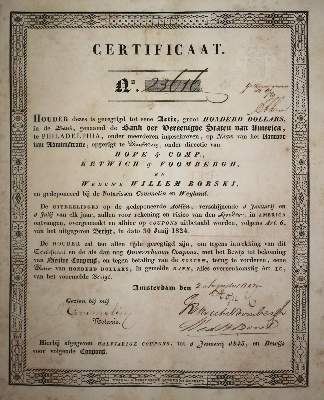 CERTIFICAAT.
No. 23616
HOUDER dezes is geregtigd tot eene Actie, groot HONDERD DOLLARS,
in de Bank, genaamd de Bank der Vereenigde Staten van America,
te PHILADELPHIA, onder meerderen ingeschreven, op Naam van het Kantoor
van Administratie, opgerigt te Amsterdam, onder directie van
HOPE & COMP.
KETWICH & VOOMBERGH,
EN
WEDUWE WILLEM BORSKI,
en gedeponeerd bij de Notarissen Commelin en Weyland.
DE UITDEELINGEN op de gedeponeerde Actiën, verschijnende 1 Januarij en
1 Julij van elk jaar, zullen voor rekening en risico van den houder, in AMERICA
ontvangen, overgemaakt en alhier op COUPONS uitbetaald worden, volgens Art. 6.
van het uitgegeven Berigt, in dato 30 Junij 1824.
DE HOUDER zal ten allen tijde geregtigd zijn, om tegens intrekking van dit
Certificaat en de als dan nog Onverschenen Coupons, met het Bewijs tot bekoming
van Verdere Coupons, en tegen betaling van de kosten, terug te vorderen, eene
Actie van HONDERD DOLLARS, in gemelde BANK, alles overeenkomstig Art.
van het voormelde Berigt.
Amsterdam den
Gezien bij mij
Commelin
Notaris.
Ketwich & Voombergh
Wed W Borski
Hierbij afgegeven HALFJARIGE COUPONS, tot 1 Januarij 1835, en Bewijs
voor volgende Coupons.